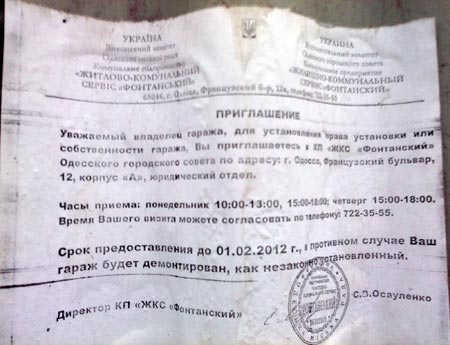 УКРАЇНА
Виконавчий комітет
Одеської міської ради
Комунальне підприємство
«ЖИТЛОВО-КОМУНАЛЬНИЙ
СЕРВІС «ФОНТАНСЬКИЙ»
УКРАИНА
Исполнительный комитет
Одесского городского совета
Коммунальное предприятие
«ЖИЛИЩНО-КОММУНАЛЬНЫЙ
СЕРВИС «ФОНТАНСКИЙ»
65044, г. Одесса, Французский б-р, 12а, телефон 722-35-55
ПРИГЛАШЕНИЕ
Уважаемый владелец гаража, для установления права установки или
собственности гаража, Вы приглашаетесь в КП «ЖКС «Фонтанский»
Одесского городского совета по адресу: г. Одесса, Французский бульвар,
12, корпус «А», юридический отдел.
Часы приема: понедельник 10:00-13:00, 15:00-18:00; четверг 15:00-18.00.
Время Вашего визита можете согласовать по телефону: 722-35-55.
Срок предоставления до 01.02.2012 г., в противном случае Ваш
гараж будет демонтирован, как незаконно установленный.
Директор КП «ЖКС «Фонтанский»
С.В.Осауленко